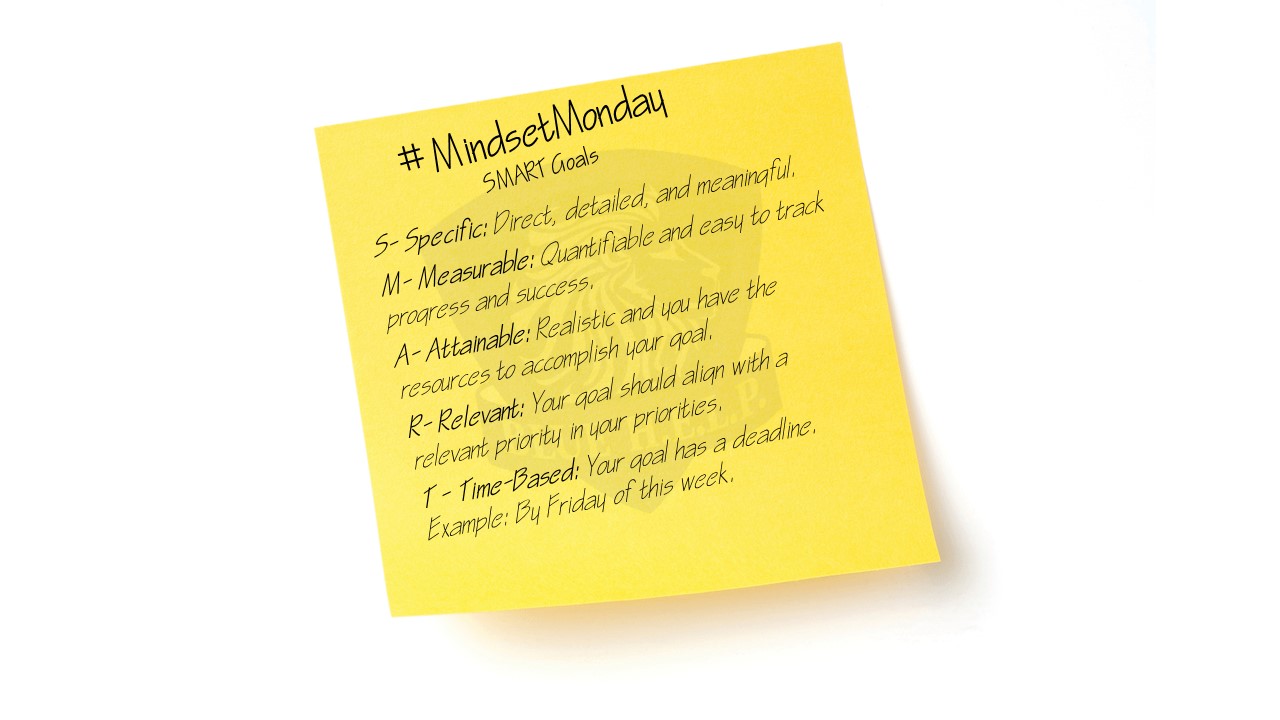 #MindsetMonday
SMART Goals
S- Specific: Direct, detailed, and meaningful.
M- Measurable: Quantifiable and easy to track
progress and success.
A- Attainable: Realistic and you have the
resources to accomplish your goal.
R- Relevant: Your goal should align with a
relevant priority in your priorities.
T - Time-Based: Your goal has a deadline.
Example: By Friday of this week.